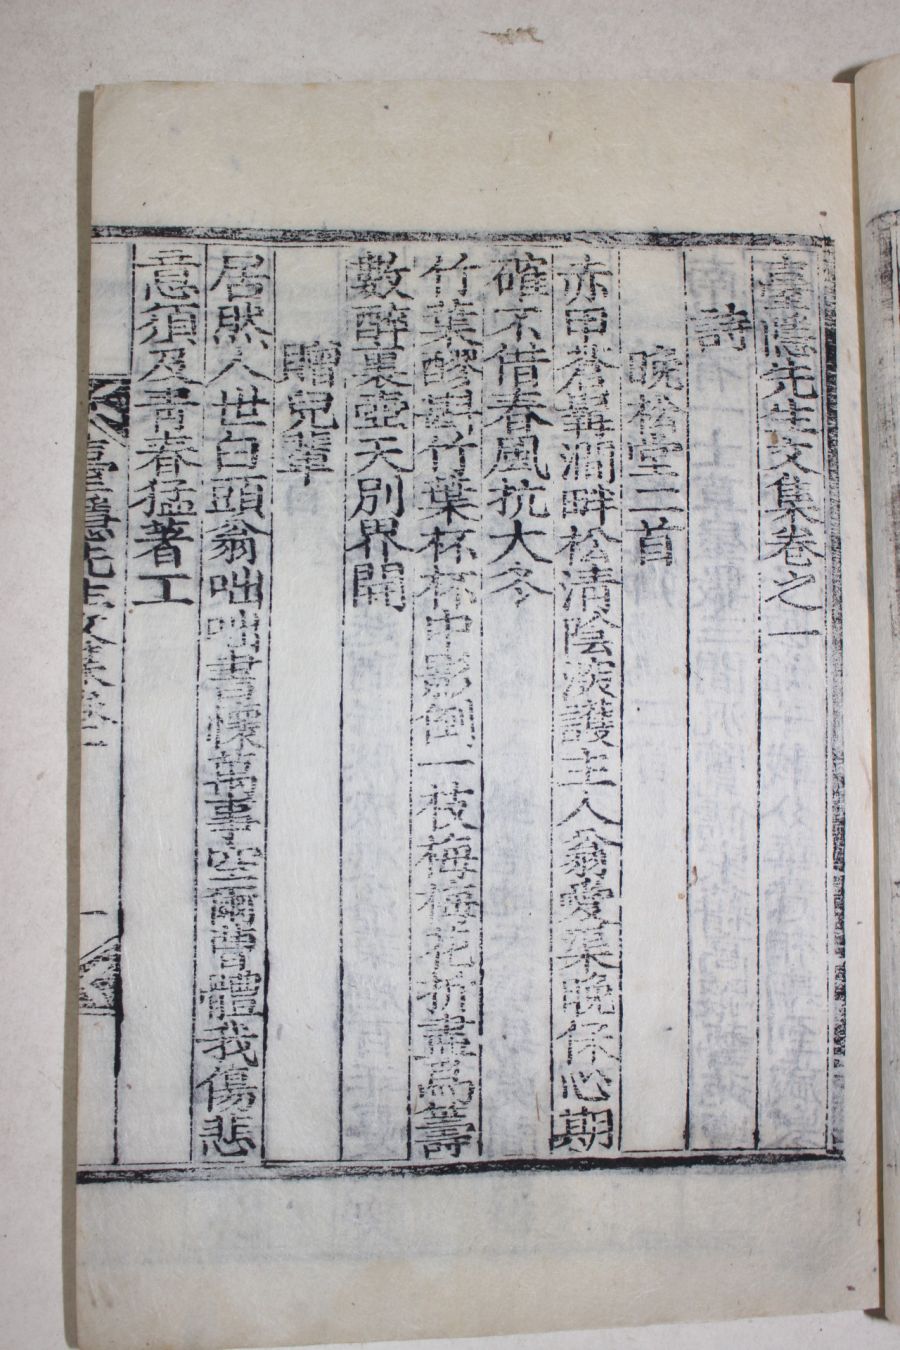 臺隱先生文集卷之一
詩
晩松堂二首
赤甲蒼髯澗畔松清陰淡護主人翁愛渠晩保心期
確不借春風抗大冬
竹葉醪斟竹葉杯杯中影倒一枝梅梅花折盡爲籌
數醉裏壺天別界開
贈兒輩
居然人世白頭翁咄咄書懷萬事空爾曹體我傷悲
意須及青春猛著工
臺隱先生文集卷之一
一